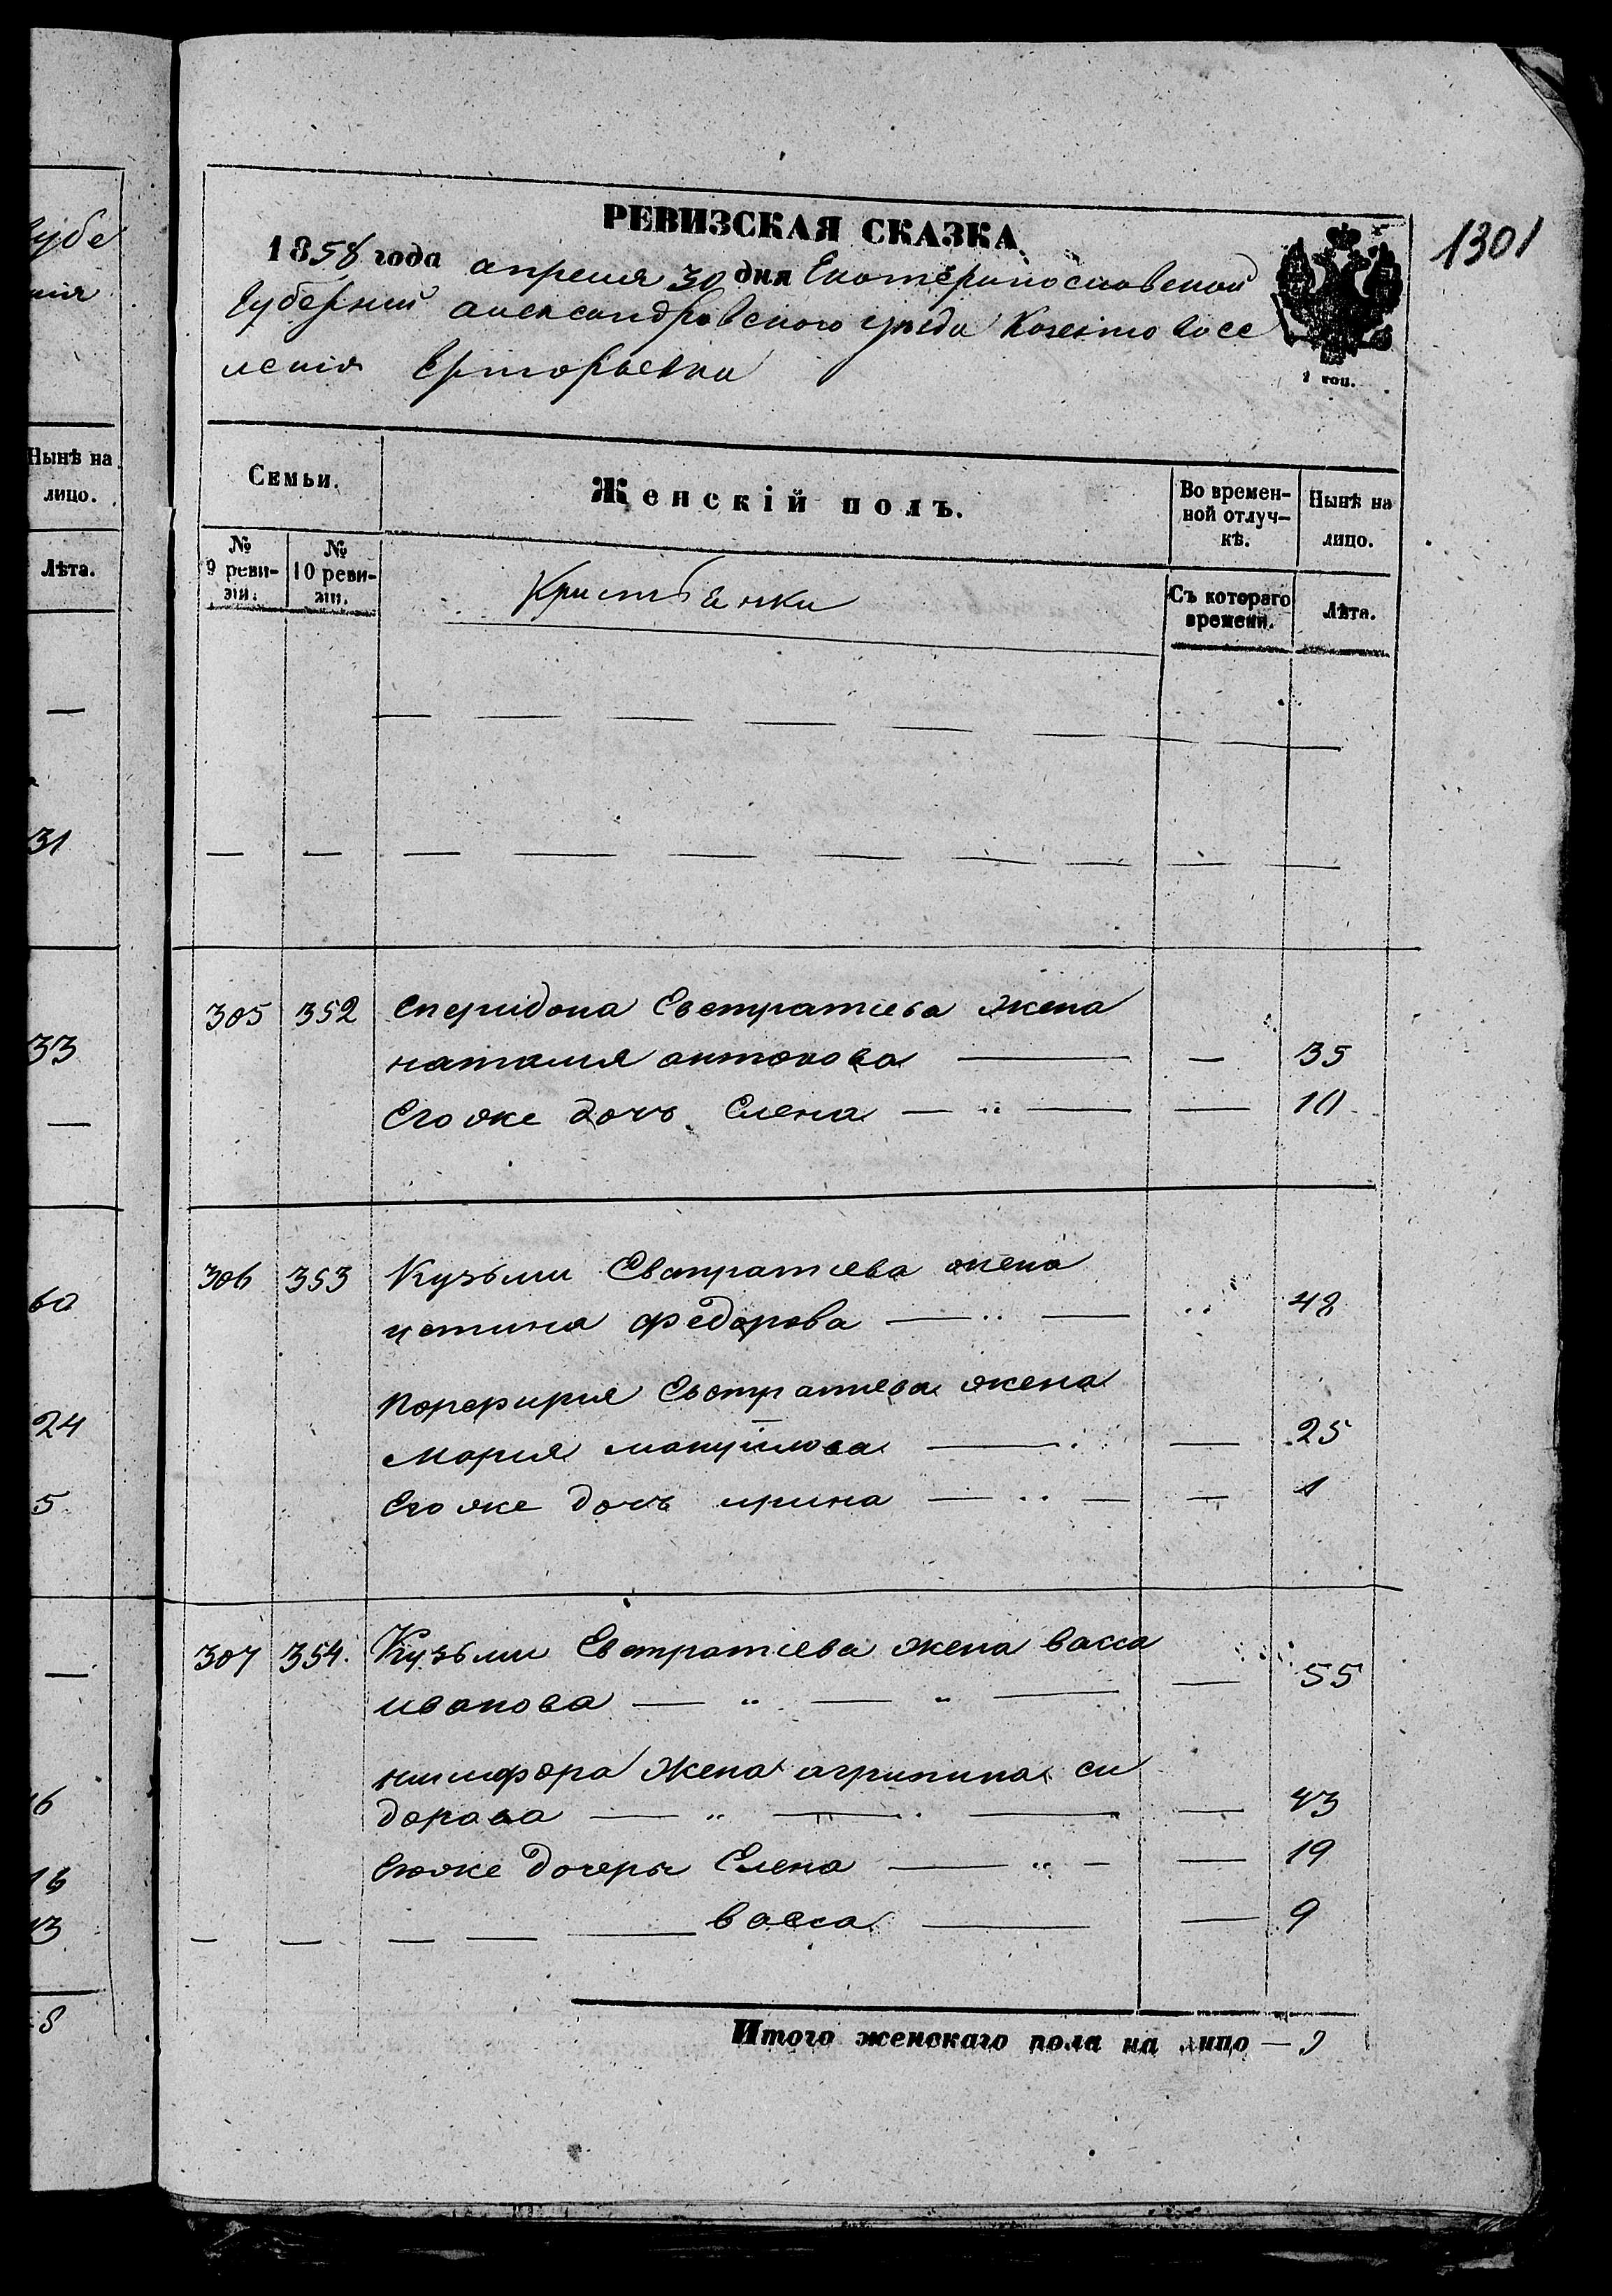 1301
РЕВИЗСКАЯ СКАЗКА
1858 года апреля 30 дня Екотеринославской
Губернии александровского уезда Казенно восе
ления Григорьевки
1 коп.
Семьи.
Женскій полъ.
Во времен-
ной отлуч-
кѣ.
Нынѣ на
лицо.
№
9 реви-
зіи.
№
10 реви-
зіи.
Кристьянки
Съ котораго
времени.
Лѣта.
305 352 Спиридона Евстратиева жена
наталия антонова — — 35
Его же дочь Елена — — — 10
306 353 Кузьми Евстратиева жена
устина федорова — — 48
Порфирия Евстратиева жена
Мария мануйлова — — 25
Его же дочь ирина — — — 1
307 354. Кузьми Евстратиева жена васса
иванова — — — — 55
никифора жена агрипина си
дорова — — — — 43
Его же дочеры Елена — — — 19
— — — — — васса — — 9
Итого женскаго пола на лицо — 9
губе
ния
Нынѣ на
лицо.
Лѣта.
—
31
33
—
60
24
5
—
16
13
8